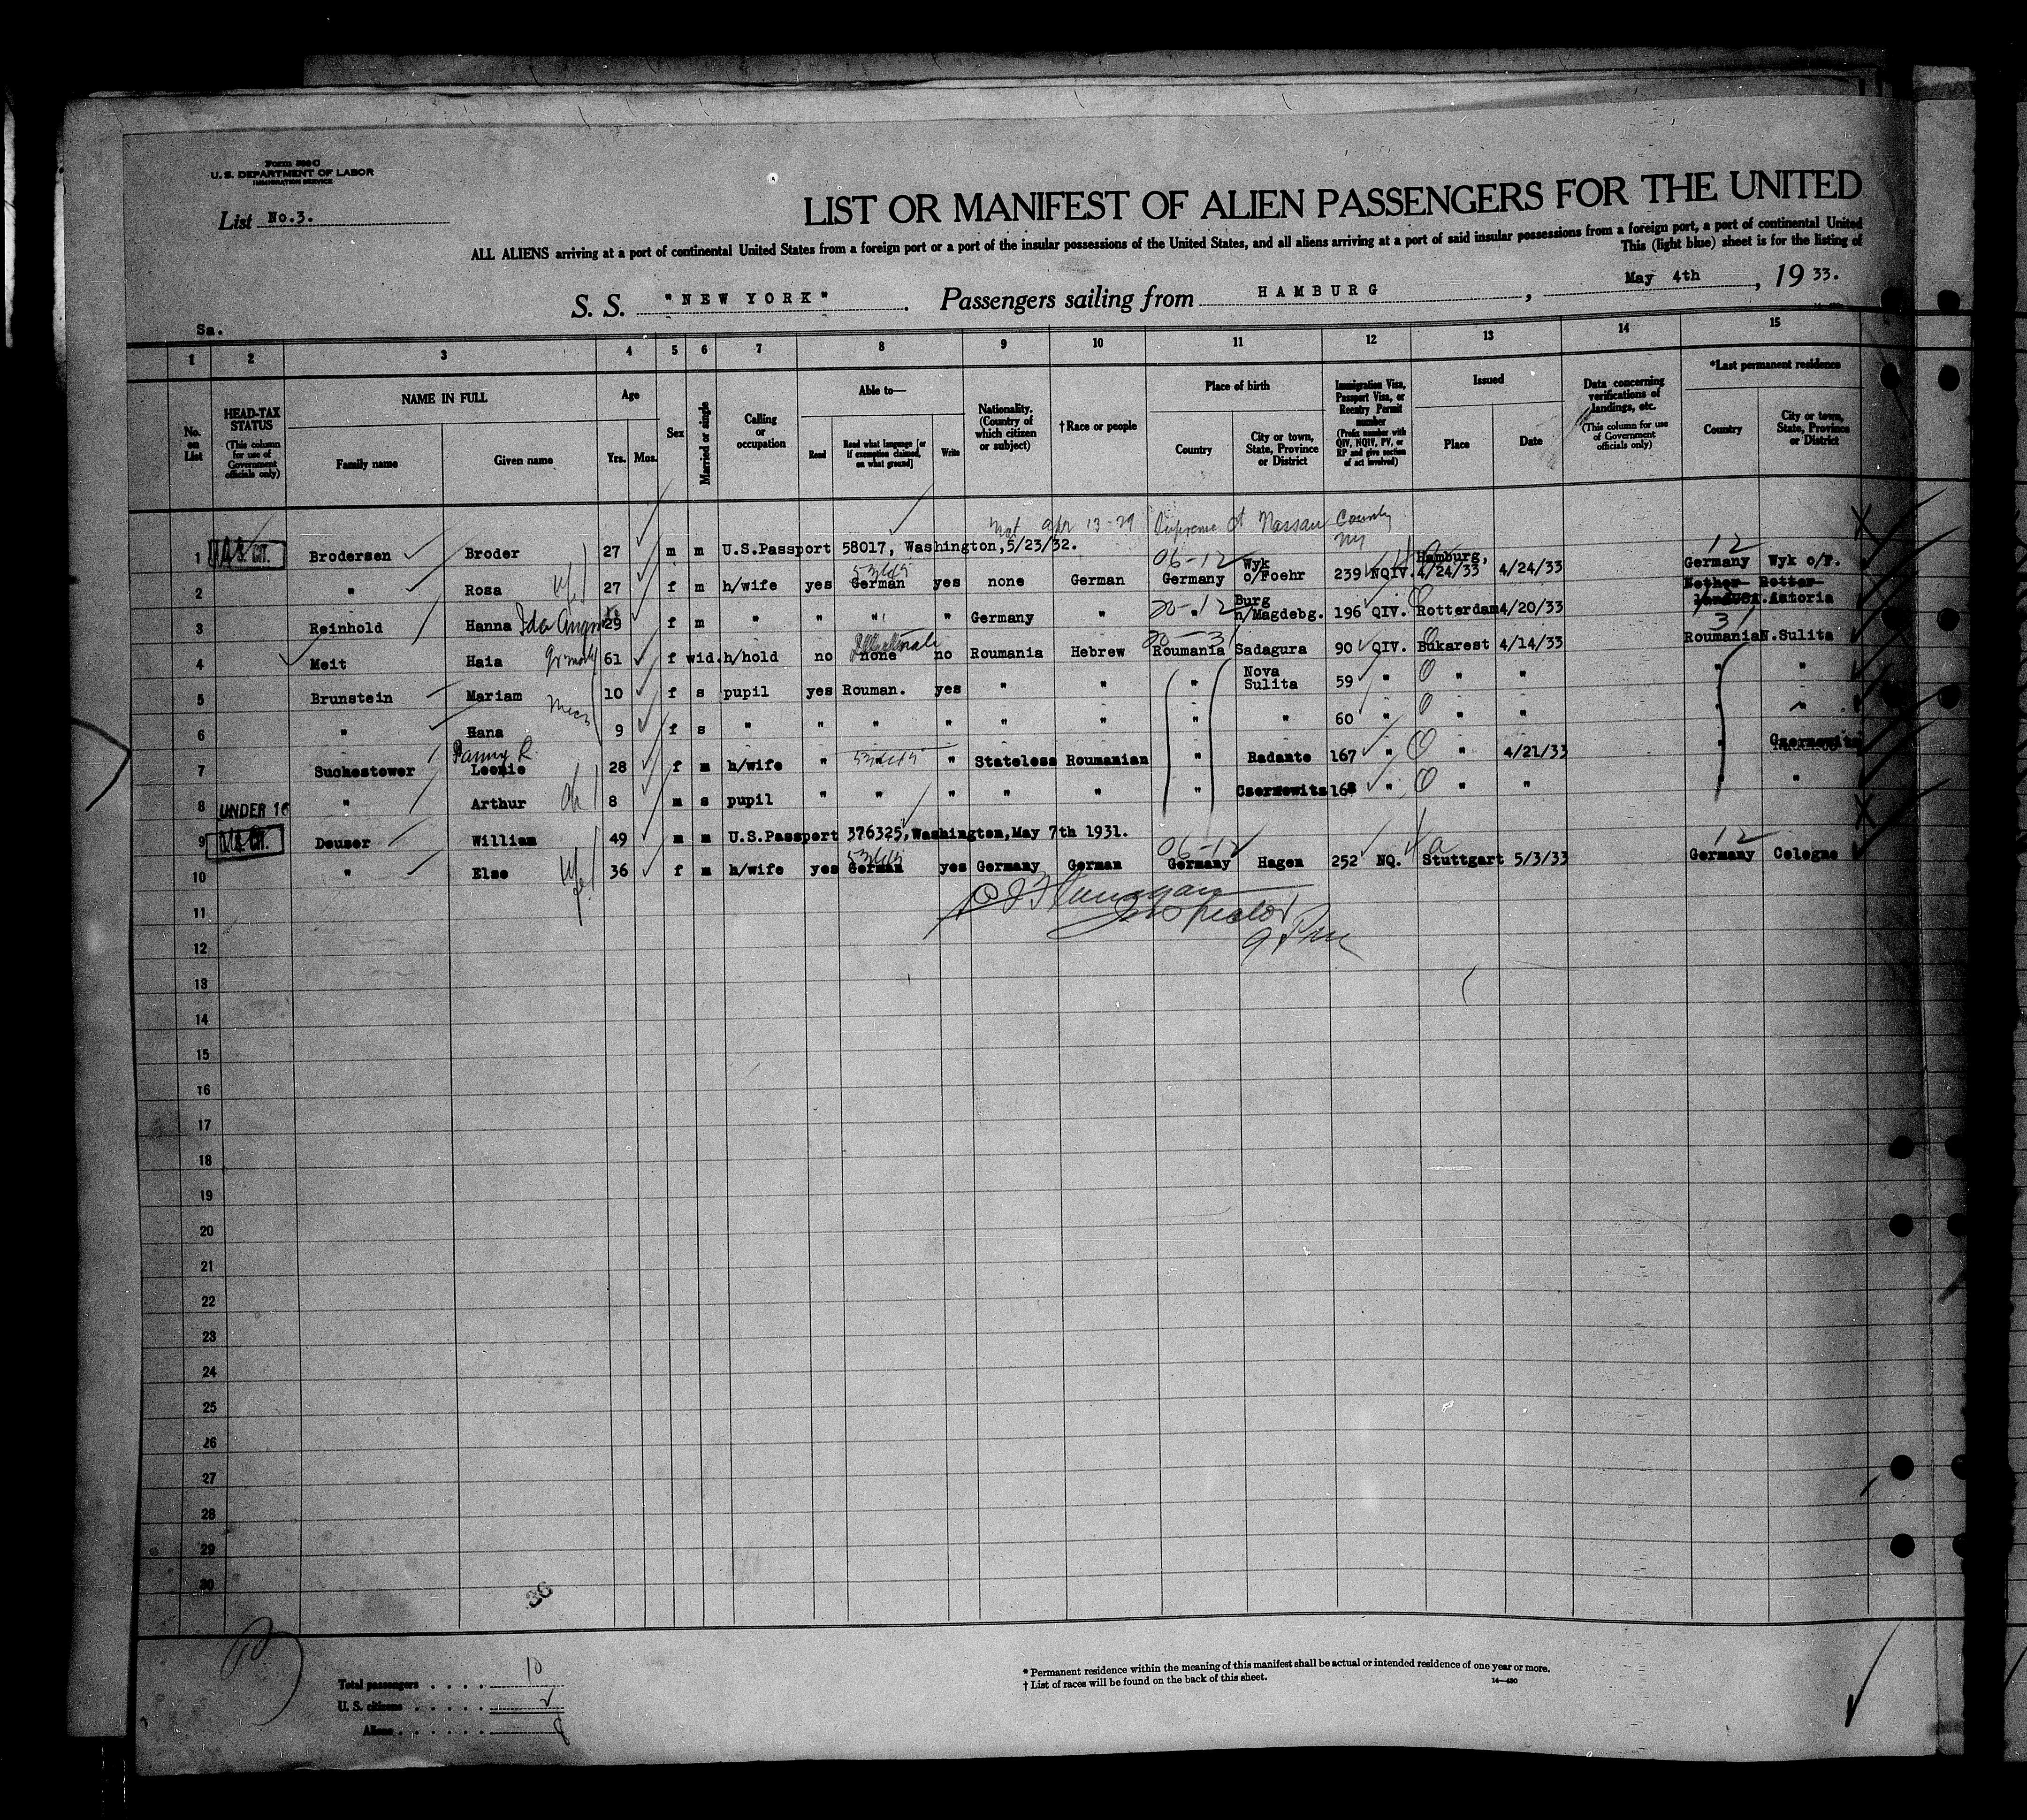 Form 500 C
U. S. DEPARTMENT OF LABOR
IMMIGRATION SERVICE
List No.3.
LIST OR MANIFEST OF ALIEN PASSENGERS FOR THE UNITED
ALL ALIENS arriving at a port of continental United States from a foreign port or a port of the insular possessions of the United States, and all aliens arriving at a port of said insular possessions from a foreign port, a port of continental United
This (light blue) sheet is for the listing of
S. S. "NEW YORK". Passengers sailing from HAMBURG, May 4th, 19 33.
Sa.
1 2 3 4 5 6 7 8 9 10 11 12 13 14 15
No. on List
HEAD-TAX STATUS (This column for use of Government officials only)
NAME IN FULL Family name Given name
Age Yrs. Mos.
Sex
Married or single
Calling or occupation
Able to— Read Read what language [or if exemption claimed, on what ground] Write
Nationality. (Country of which citizen or subject)
†Race or people
Place of birth Country City or town, State, Province or District
Immigration Visa, Passport Visa, or Reentry Permit number (Prefix number with QIV, NQIV, PV, or RP and give section of act involved)
Issued Place Date
Data concerning verifications of landings, etc. (This column for use of Government officials only)
*Last permanent residence Country City or town, State, Province or District
apr 13-29 Supreme Ct Nassau County NY
1 U.S. CIT. Brodersen Broder 27 m m U.S.Passport 58017, Washington,5/23/32.
2 " Rosa 27 f m h/wife yes German yes none German 06-12 Germany Wyk o/Foehr 239 NQIV. Hamburg, 4/24/33 4/24/33 12 Germany Wyk o/F.
3 Reinhold Hanna Ida 29 f m " " " " Germany " 20-12 " Burg n/Magdebg. 196 QIV. Rotterdam 4/20/33 Nether- land USA. Rotter- Astoria
4 Meit Haia 61 f wid. h/hold no none no Roumania Hebrew 20-31 Roumania Sadagura 90 QIV. Bukarest 4/14/33 31 Roumania N.Sulita
5 Brunstein Mariam 10 f s pupil yes Rouman. yes " " " Nova Sulita 59 " " " " "
6 " Hana 9 f s " " " " " " " " 60 " " " " "
7 Suchestower Fanny R. Leonie 28 f m h/wife " " Stateless Roumanian " Radautz 167 " " 4/21/33 " Czernowitz
8 UNDER 16 " Arthur 8 m s pupil " " " " " " Czernowitz 168 " " " " "
9 U.S. CIT. Deuser William 49 m m U.S.Passport 376325, Washington,May 7th 1931.
10 " Else 36 f m h/wife yes German yes Germany German 06-12 Germany Hagen 252 NQ. Stuttgart 5/3/33 12 Germany Cologne
11 Inspector
12 9 Pm
13
14
15
16
17
18
19
20
21
22
23
24
25
26
27
28
29
30
30
Total passengers 10
U. S. citizens 2
Aliens 8
* Permanent residence within the meaning of this manifest shall be actual or intended residence of one year or more.
† List of races will be found on the back of this sheet.
14—430